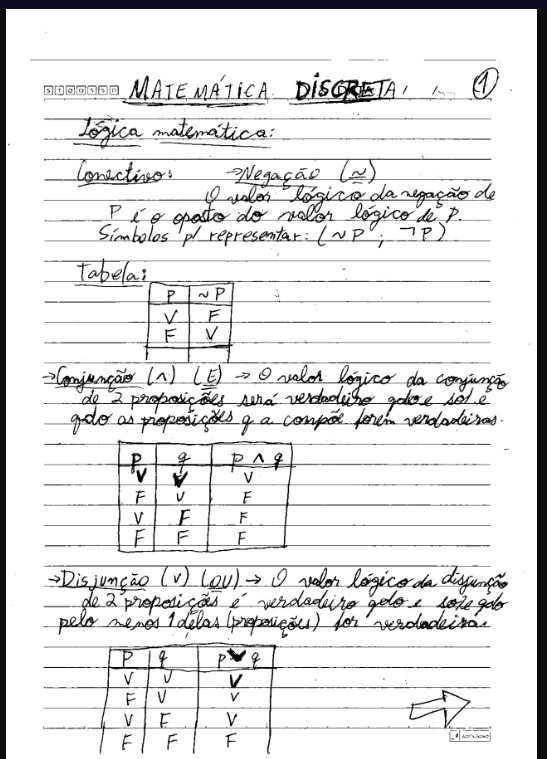 S T Q Q S S D MATEMÁTICA DISCRETA 1
Lógica matemática:
Conectivos: →Negação (~)
O valor lógico da negação de
P é o oposto do valor lógico de P.
Símbolos p/ representar: (~P ; ¬P)
Tabela:
P ~P
V F
F V
→Conjunção (∧) (E) → O valor lógico da conjunção
de 2 proposições será verdadeiro qdo e só e
qdo as proposições q a compõe forem verdadeiras.
p q p ∧ q
V V V
F V F
V F F
F F F
→Disjunção (v) (OU) → O valor lógico da disjunção
de 2 proposições é verdadeiro qdo e so e qdo
pelo menos 1 delas (proposições) for verdadeira.
P q p v q
V V V
F V V
V F V
F F F